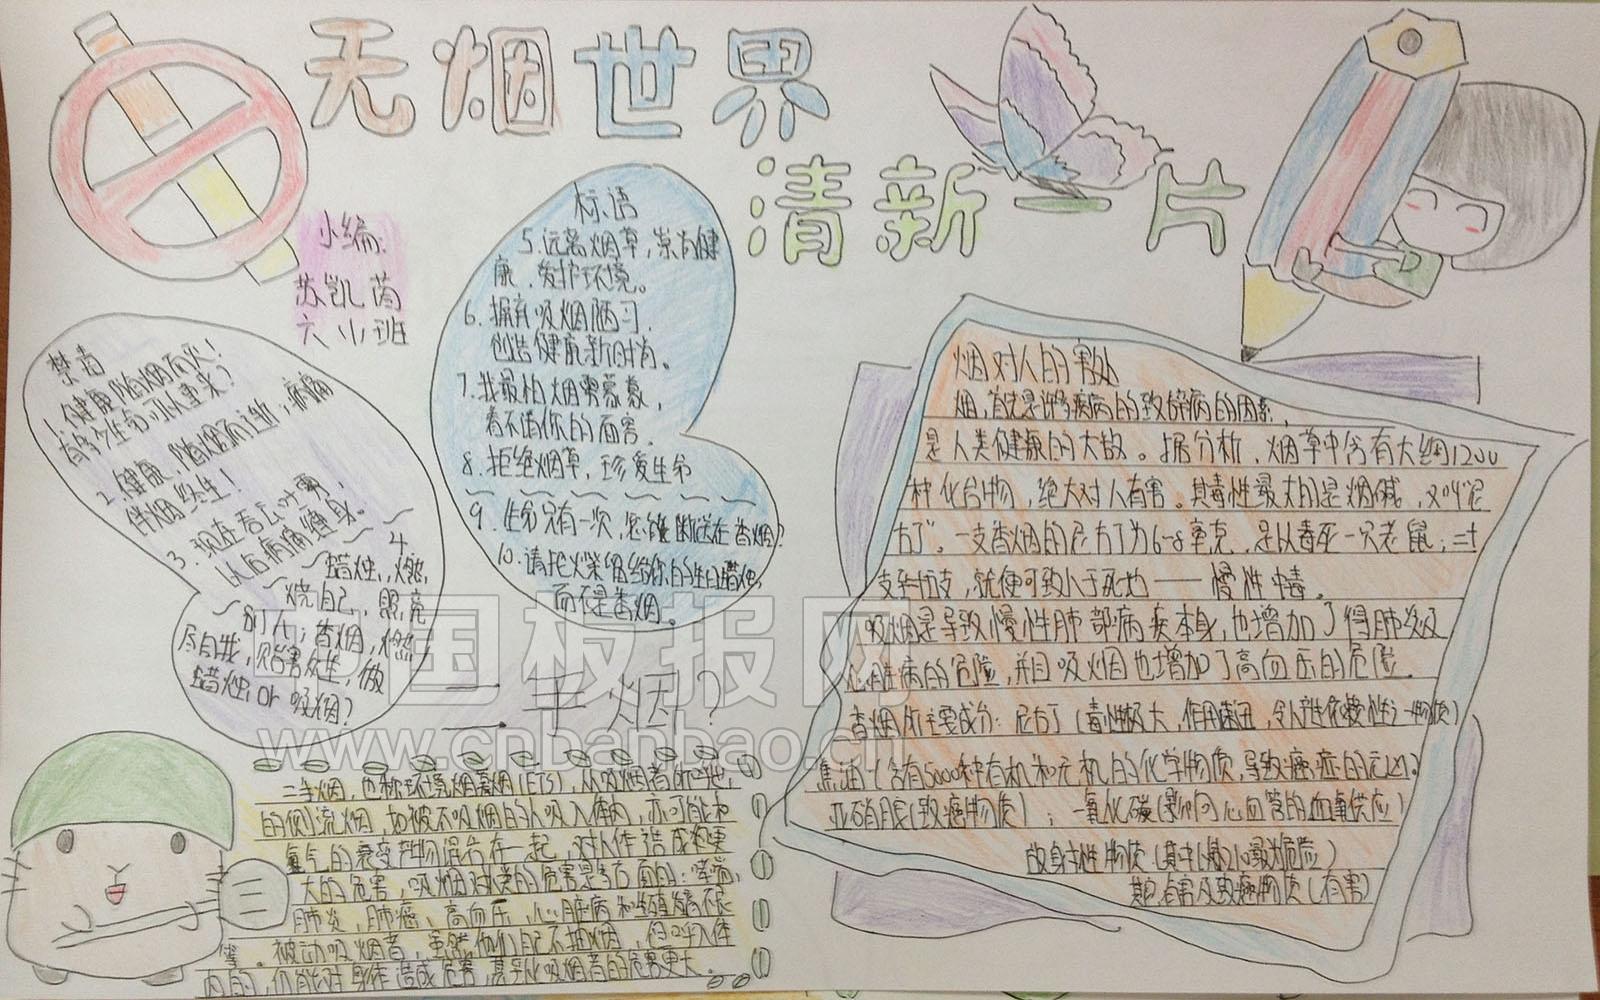 无烟世界
清新一片
小编:
苏凯茵
六小班
标语
5.远离烟草,崇尚健
康、爱护环境。
6.摒弃吸烟陋习,
创造健康新时尚。
7.我最怕烟雾蒙蒙,
看不清你的面容。
8.拒绝烟草,珍爱生命
9.生命只有一次,怎能断送在香烟?
10.请把火柴留给你的生日蜡烛,
而不是香烟。
1.健康随烟而灭!
有多少生命可以重来?
2.健康,随烟而逝;病痛
伴烟终生!
以后病痛缠身。
4.
蜡烛,燃
烧自己,照亮
别人;香烟,燃
尽自我,贻害众生,做
蜡烛or吸烟?
二手烟?
二手烟,也称环境烟草烟(ETS),从吸烟者
的侧流烟,如被不吸烟的人吸入体内,亦可能和
氡气的衰变产物混合在一起,对人体造成更
大的危害,吸烟对人类的危害是多方面的:哮喘、
肺炎,肺癌、高血压,心脏病和生殖发育不良
等。被动吸烟者,虽然他们自己不抽烟,但
内的,仍能对身体造成危害,甚至比吸烟者的危害更大。
烟对人的害处
烟,首先是许多疾病的致癌病的因素,
是人类健康的大敌。据分析,烟草中含有大约1200
种化合物,绝大对人有害。其毒性最大的是烟碱,又叫“尼
古丁”。一支香烟的尼古丁为6-8毫克,足以毒死一只老鼠;二十
支至伍支,就便可致人于死地——慢性中毒。
吸烟是导致慢性肺部病疾本身,也增加了得肺炎及
心脏病的危险,并且吸烟也增加了高血压的危险。
香烟所主要成分:尼古丁(毒性极大,作用速迅,令人产生依赖性之一物质)
焦油(含有5000种有机和无机的化学物质,导致癌症的元凶)
亚硝胺(致癌物质);一氧化碳(影响心血管的血氧供应)
放射性物质(其中
其它有害及致癌物质(有害)
中国板报网
www.cnbanbao.cn